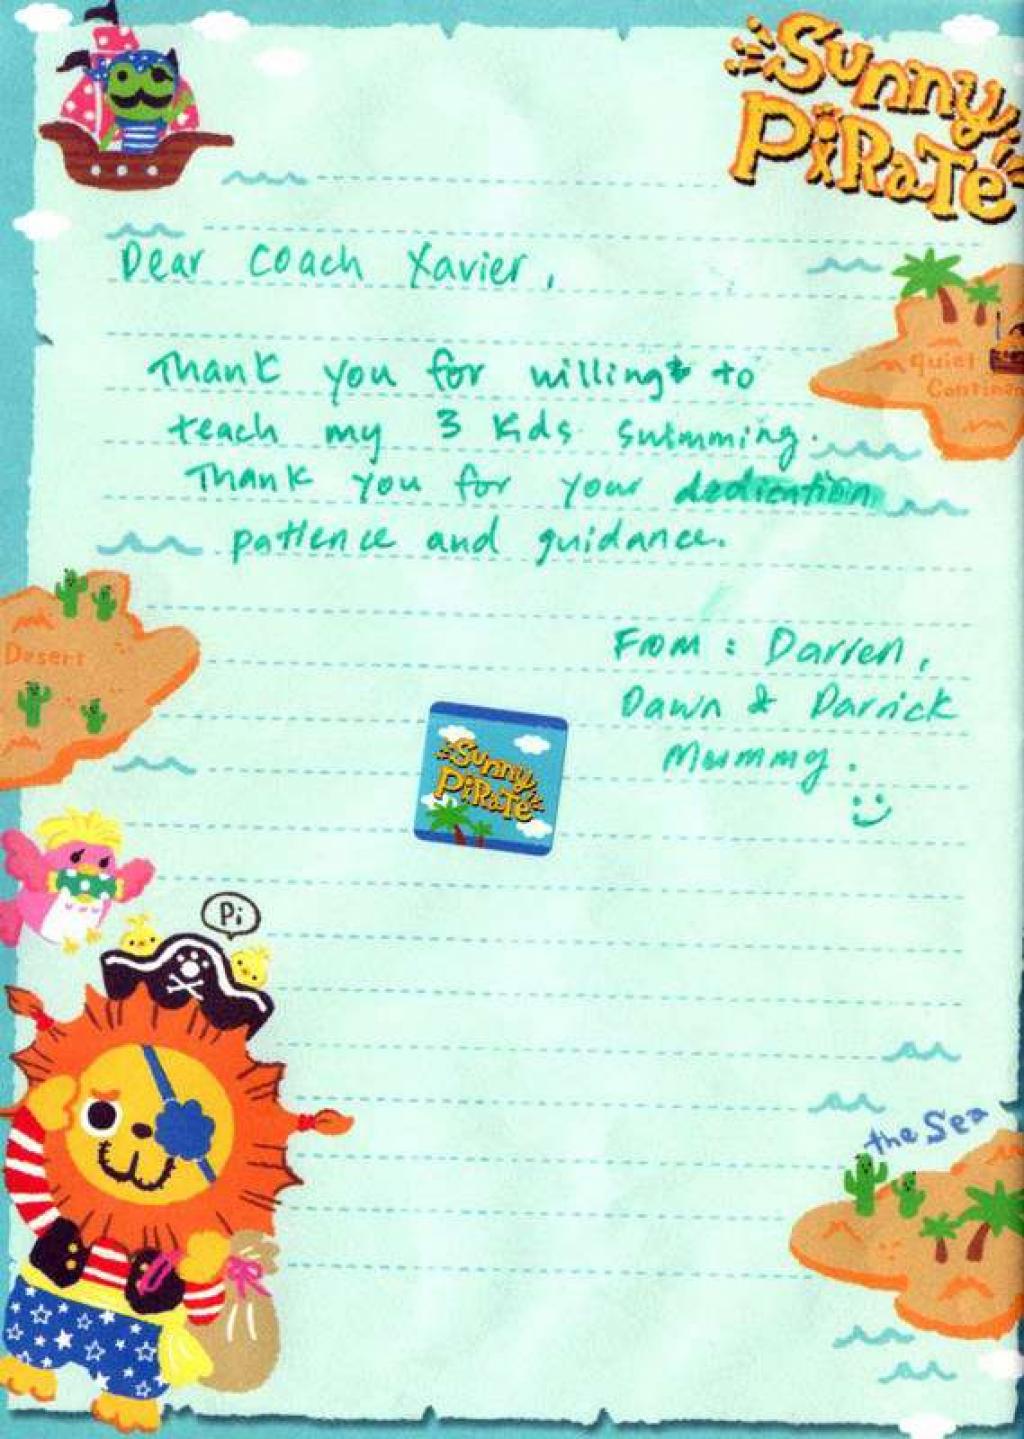 Sunny
PiRaTe
Dear Coach Xavier,
Quiet
Thank you for willing to
teach my 3 kids swimming.
Thank you for your dedication
patience and guidance.
Desert
From : Darren,
Dawn & Darrick
Mummy.
Sunny
PiRaTe
Pi
the Sea